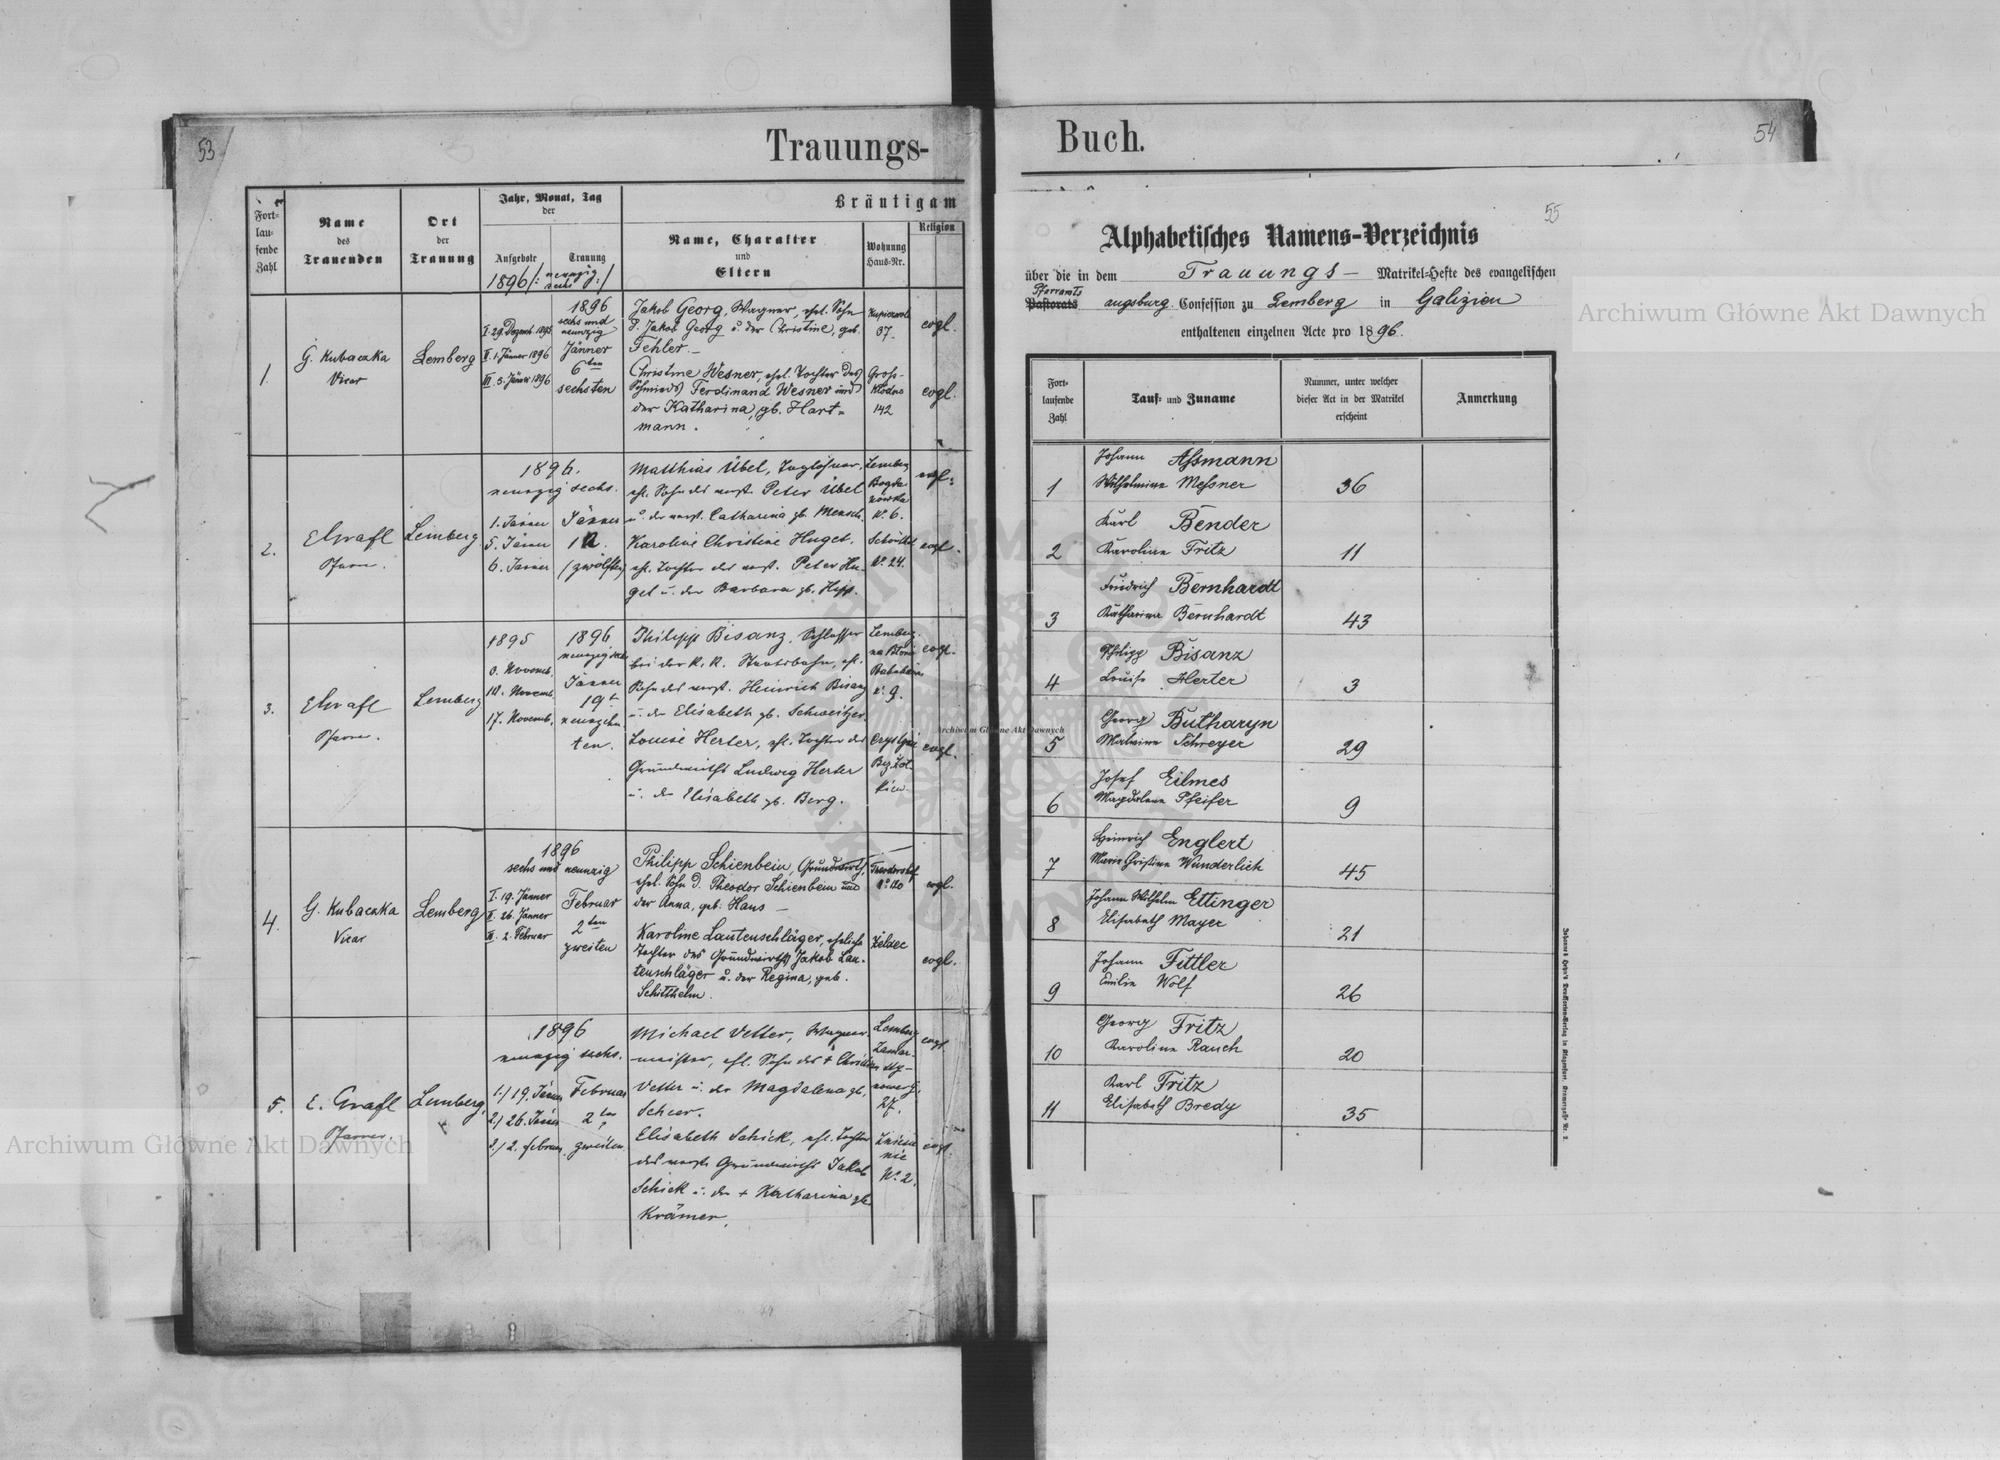 53
Trauungs-
Fort-
lau-
fende
Zahl
Name
des
Trauenden
Ort
der
Trauung
Jahr, Monat, Tag
der
Aufgebote
Trauung
1896 /: neunzig
sechs :/
Bräutigam
Name, Charakter
und
Eltern
Wohnung
Haus-Nr.
Religion
1.
G. Kubaczka
Vicar
Lemberg
I. 29. Dezemb. 1895
II. 1. Jänner 1896
III. 5. Jänner 1896
1896
sechs und
neunzig
Jänner
6ten
sechsten
Jakob Georg Wagner, ehel. Sohn
d. Jakob Georg u. der Christine, geb.
Fehler.
37.
evgl.
Christine Wesner, ehel. Tochter des
Schmieds Ferdinand Wesner und
der Katharina, gb. Hart-
mann.
Gross-
142
evgl.
2.
Grafl
Pfarrer.
Lemberg
1896.
neunzig sechs.
1. Jänner
5. Jänner
6. Jänner
Jänner
12
(zwölften)
Matthias Übel, Taglöhner,
ehl. Sohn des verst. Peter Übel
u. der verst. Catharina gb. Mensch.
Lemberg
Bogda-
nówka
No. 6.
evgl.
Karoline Christine Huget,
ehl. Tochter des verst. Peter Hu-
get u. der Barbara gb. Hipp.
No. 24.
evgl.
3.
Grafl
Pfarrer.
Lemberg
1895
3. Novemb.
10. Novemb.
17. Novemb.
1896
neunzig sechs
Jänner
19t
neunzehn
ten.
Philipp Bisanz, Schlosser
bei der K. K. Staatsbahn, ehl.
Sohn des verst. Heinrich Bisanz
u. der Elisabeth gb. Schweitzer.
Lemberg
na Błonie
No. 9.
evgl.
Louise Herter, ehl. Tochter des
Grundwirths Ludwig Herter
u. der Elisabeth gb. Berg.
evgl.
4.
G. Kubaczka
Vicar
Lemberg
1896
sechs und neunzig
I. 19. Jänner
II. 26. Jänner
III. 2. Februar
Februar
2ten
zweiten
Philipp Schienbein, Grundwirth,
ehel. Sohn d. Theodor Schienbein und
der Anna, geb. Haus
Theodorshof
evgl.
Karoline Lautenschläger, eheliche
Tochter des Grundwirths Jakob Lau-
tenschläger u. der Regina, geb.
Schitthelm.
Zeldec
evgl.
5.
E. Grafl
Pfarrer.
Lemberg,
1896
neunzig sechs.
1.) 19. Jänner
2.) 26. Jänner
3.) 2. Februar
Februar
2ten
zweiten
Michael Vetter, Wagner
meister, ehl. Sohn des + Christian
Vetter u. der Magdalena gb.
Scheer.
Lemberg
27.
evgl.
Elisabeth Schick, ehl. Tochter
des verst. Grundwirths Jakob
Schick u. der + Katharina gb.
Krämer.
Zniesie
nie
No. 2.
evgl.
Buch.
54
55
Alphabetisches Namens-Verzeichnis
über die in dem Trauungs- Matrikel-Hefte des evangelischen
Pfarramts
Pastorats augsburg. Confession zu Lemberg in Galizien
enthaltenen einzelnen Acte pro 1896.
Fort-
laufende
Zahl
Tauf- und Zuname
Nummer, unter welcher
dieser Act in der Matrikel
erscheint
Anmerkung
Johann Assmann
1 Wilhelmine Messner 36
Karl Bender
2 Karoline Fritz 11
Friedrich Bernhardt
3 Katharina Bernhardt 43
Philipp Bisanz
4 Louise Herter 3
Georg Butharyn
5 Malwine Schreyer 29
Josef Eilmes
6 Magdalena Pfeifer 9
Heinrich Englert
7 Marie Christine Wunderlich 45
Johann Wilhelm Ettinger
8 Elisabeth Mayer 21
Johann Fittler
9 Emilie Wolf 26
Georg Fritz
10 Karoline Rauch 20
Karl Fritz
11 Elisabeth Bredy 35
Archiwum Główne Akt Dawnych
Archiwum Główne Akt Dawnych
Archiwum Główne Akt Dawnych